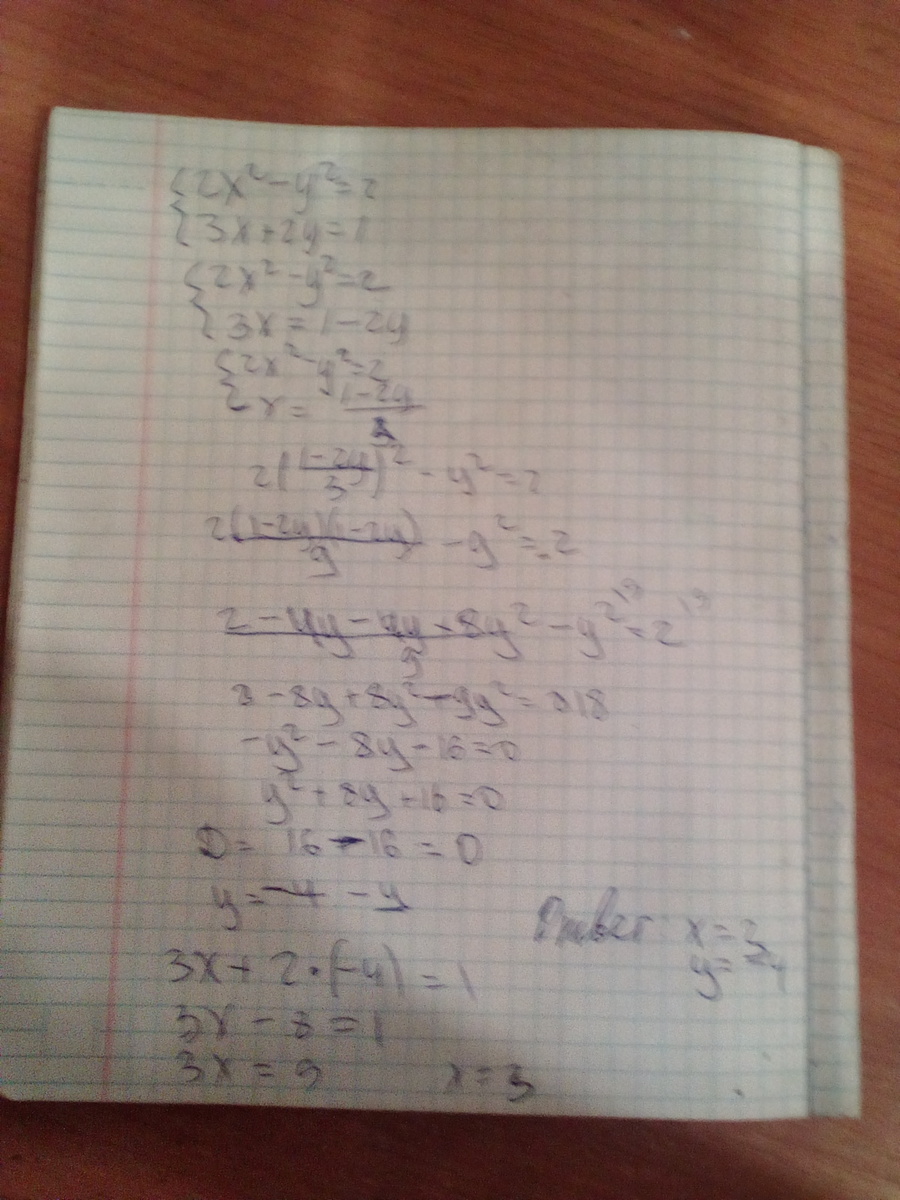 {2x² - y² = 2
{3x + 2y = 1
{2x² - y² = 2
{3x = 1 - 2y
{2x² - y² = 2
{x = (1 - 2y)/3
2((1 - 2y)/3)² - y² = 2
2(1 - 2y)(1 - 2y)/9 - y² = 2
(2 - 4y - 4y + 8y²)/9 - y² = 2
2 - 8y + 8y² - 9y² = 18
-y² - 8y - 16 = 0
y² + 8y + 16 = 0
D = 16 - 16 = 0
y = -4
3x + 2·(-4) = 1
3x - 8 = 1
3x = 9 x = 3
Ответ x = 3
y = -4